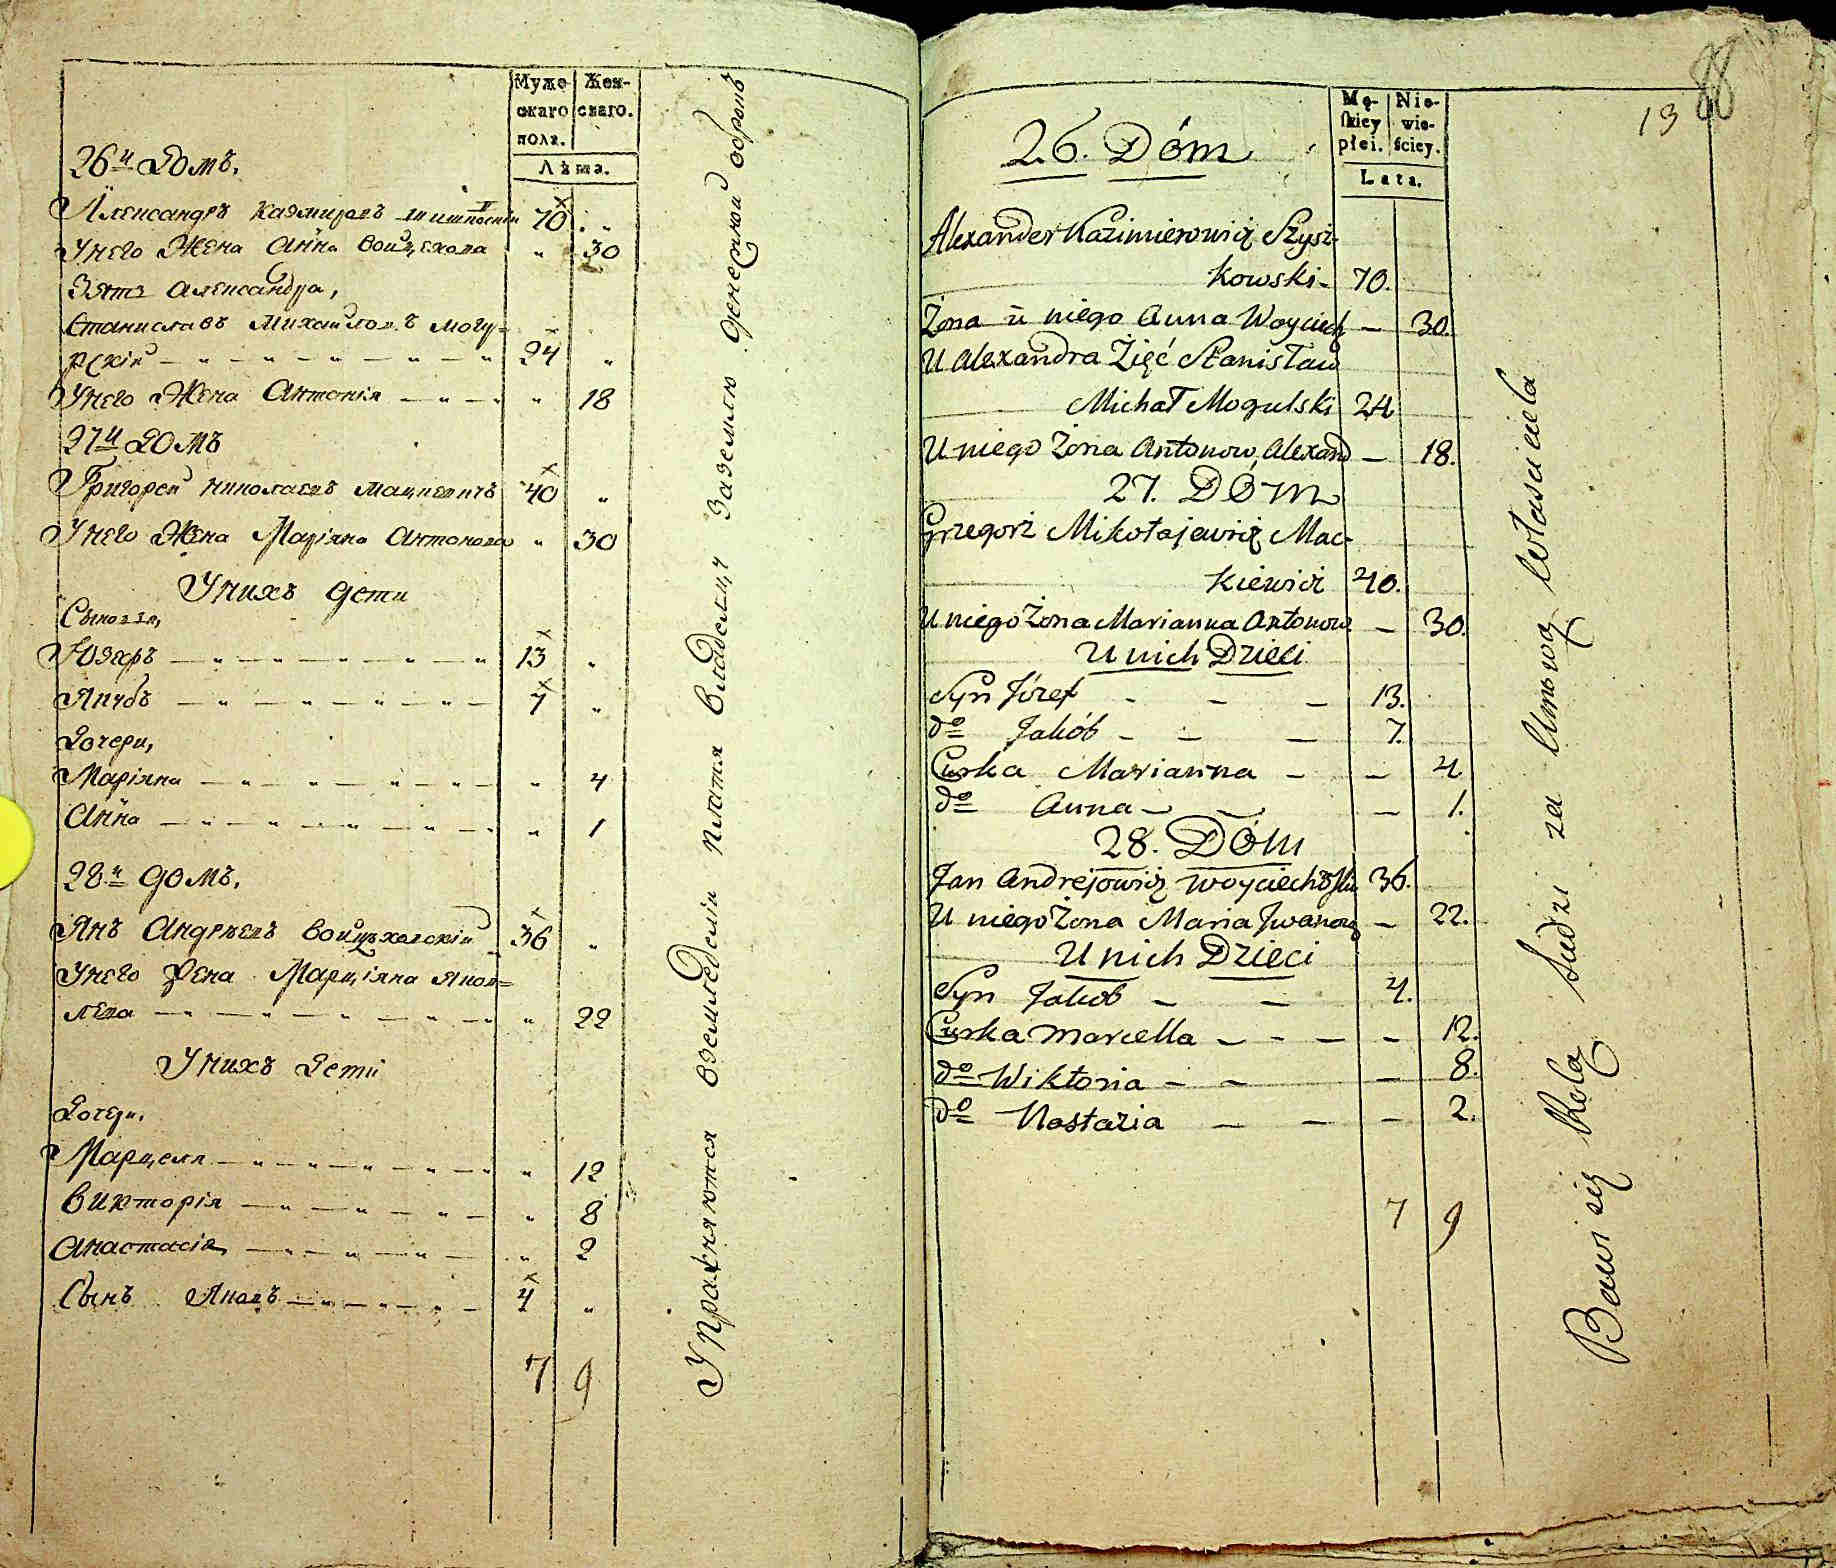 Муже-
скаго
пола.
Жен-
скаго.
Лѣта.
26й Домъ.
Александръ Казмировъ Шишковскій 70 „
У него Жена Анна Войцехова „ 30
Зять Александра,
Станиславъ Михайловъ Могу-
рскій — „ — „ — „ — „ 24 „
У него Жена Антонія — „ — „ 18
27й Домъ
Григорей Николаевъ Мацкевичъ 40 „
У него Жена Маріяна Антонова „ 30
У нихъ дети
Сыновья,
Юзефъ — „ — „ — „ — „ 13 „
Якубъ — „ — „ — „ — „ 7 „
Дочери,
Маріяна — „ — „ — „ — „ 4
Анна — „ — „ — „ — „ 1
28й домъ.
Янъ Андреевъ Войцѣховскій 36 „
У него Жена Марціяна Яков=
лева — „ — „ — „ — „ 22
У нихъ Дети
Дочери.
Марцеля — „ — „ — „ — „ 12
Викторія — „ — „ — „ — „ 8
Анастасія — „ — „ — „ — „ 2
Сынъ Яковъ — „ — „ — „ — 4 „
7 9
Упражняются вземледѣліи платя владѣлцу за землю денежный оброкъ
88
13
Mę-
skiey
płei.
Nie-
wie-
ściey.
Lata.
26. Dóm
Alexander Kazimierowicz Szysz-
kowski - 70.
Żona u niego Anna Woyciech — 30.
U Alexandra Zięć Stanisław
Michał Mogulski 24
U niego Żona Antonow. Alexand — 18.
27. Dóm
Grzegorz Mikołajewicz Mac-
kiewicz 40.
U niego Żona Marianna Antonow — 30.
U nich Dzieci
Syn Józef - - — 13.
do Jakób - — — 7.
Curka Marianna - — 4
do Anna — — — 1.
28. Dóm
Jan Andrejowicz Woyciechowski 36.
U niego Żona Maria Iwanow — 22.
U nich Dzieci
Syn Jakob — — 4.
Curka Marcella — - — - 12.
do Wiktoria — — — 8.
do Nastazia — — — 2.
7 9
Bawi się Rolą Ludzi za Umową Właściciela